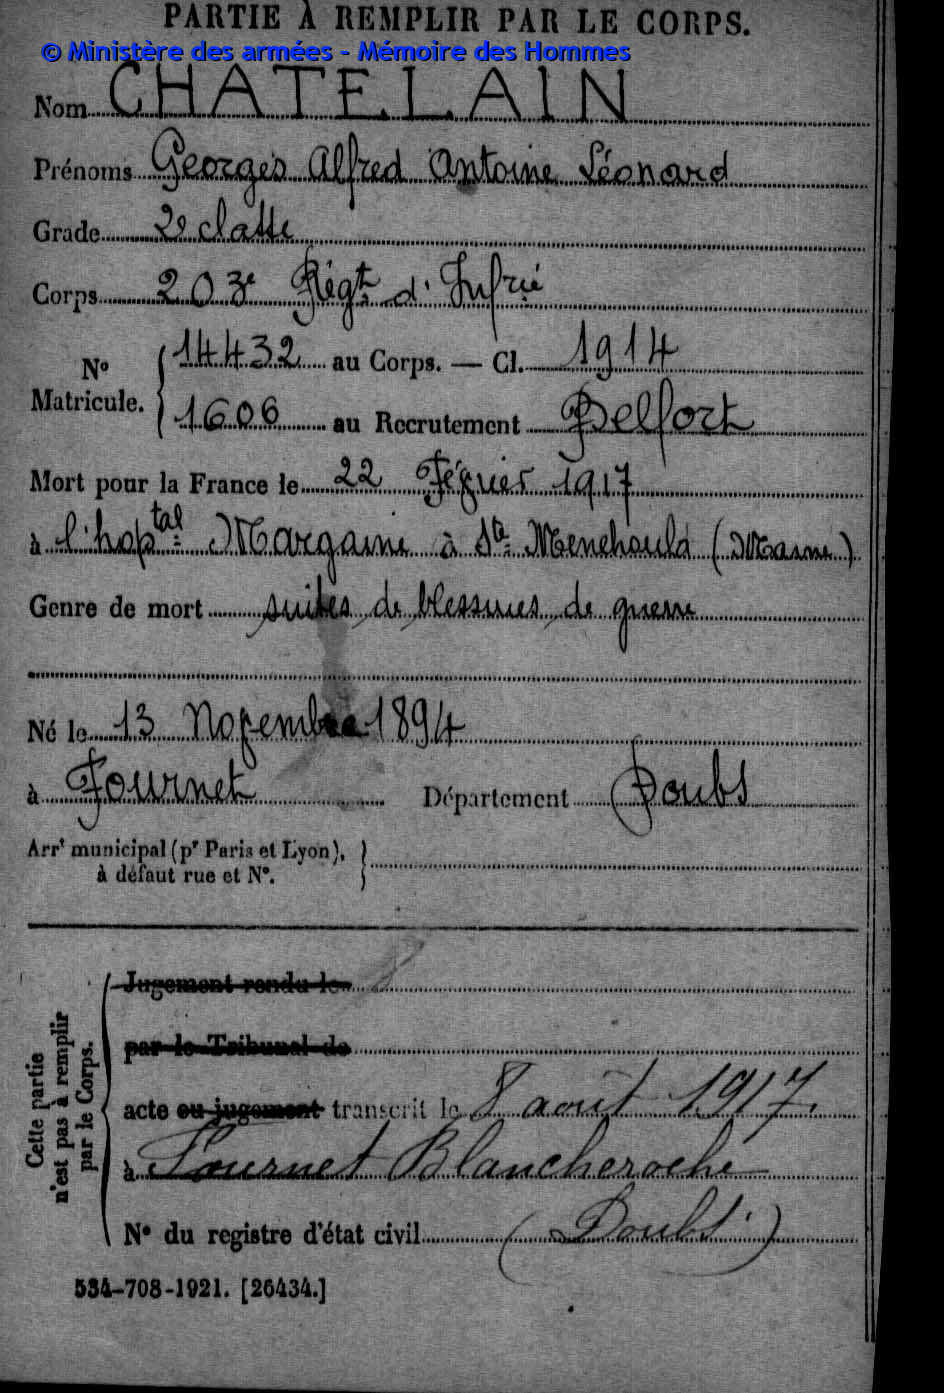 PARTIE À REMPLIR PAR LE CORPS.
© Ministère des armées - Mémoire des Hommes
Nom CHATELAIN
Prénoms Georges Alfred Antoine Léonard
Grade 2e classe
Corps 203e Régt d'Infrie
No Matricule. 14432 au Corps. — Cl. 1914
1606 au Recrutement Belfort
Mort pour la France le 22 Février 1917
à l'hoptal Margaine à Ste Menehould (Marne)
Genre de mort suites de blessures de guerre
Né le 13 Novembre 1894
à Fournet Département Doubs
Arrt municipal (pr Paris et Lyon),
à défaut rue et No.
Cette partie
n'est pas à remplir
par le Corps.
Jugement rendu le
par le Tribunal de
acte ou jugement transcrit le 8 août 1917.
à Fournet Blancheroche
No du registre d'état civil (Doubs)
534-708-1921. [26434.]